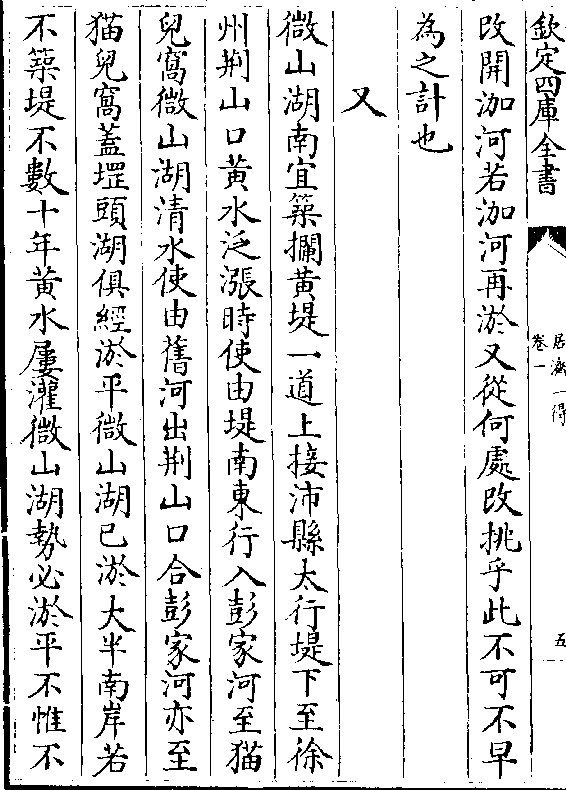 欽定四庫全書
居濟一得
卷一
五
改開泇河若泇河再淤又從何處改挑乎此不可不早
為之計也
又
微山湖南宜築攔黄堤一道上接沛縣太行堤下至徐
州荆山口黄水泛漲時使由堤南東行入彭家河至猫
兒窩微山湖清水使由舊河出荆山口合彭家河亦至
猫兒窩蓋堽頭湖俱經淤平微山湖已淤大半南岸若
不築堤不數十年黄水屢灌微山湖勢必淤平不惟不